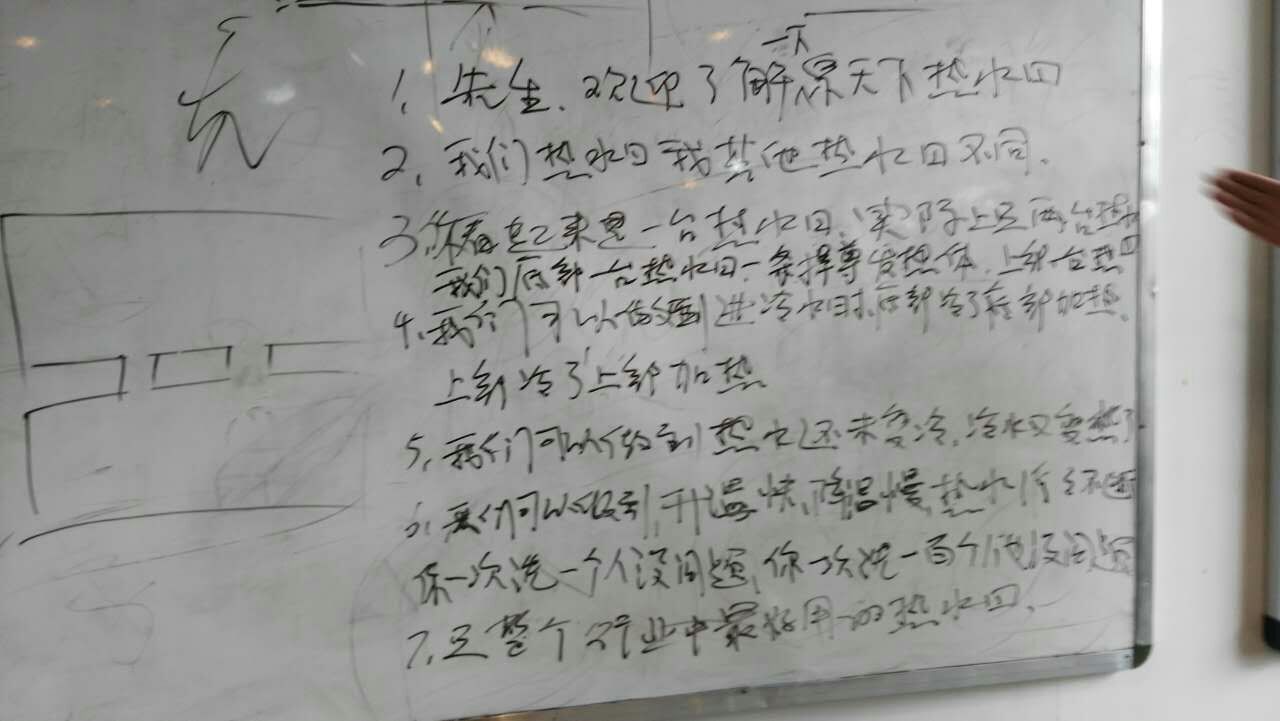 一下
1、先生、欢迎了解浪天下热水口
2、我们热水口我其他热水口不同、
3、你看起来是一台热水口、实际上是两台热水
我们底部一台热水口、一条择尊发热体、上部一台热口
4、我们可以做到进冷水时、底部冷了底部加热、
上部冷了上部加热
5、我们可以做到热水还未变冷、冷水又变热了
6、我们可以做到升温快、降温慢、热水不断
你一次洗一个人没问题、你一次洗一百个人没问题
7、是整个行业中最好用的热水口、